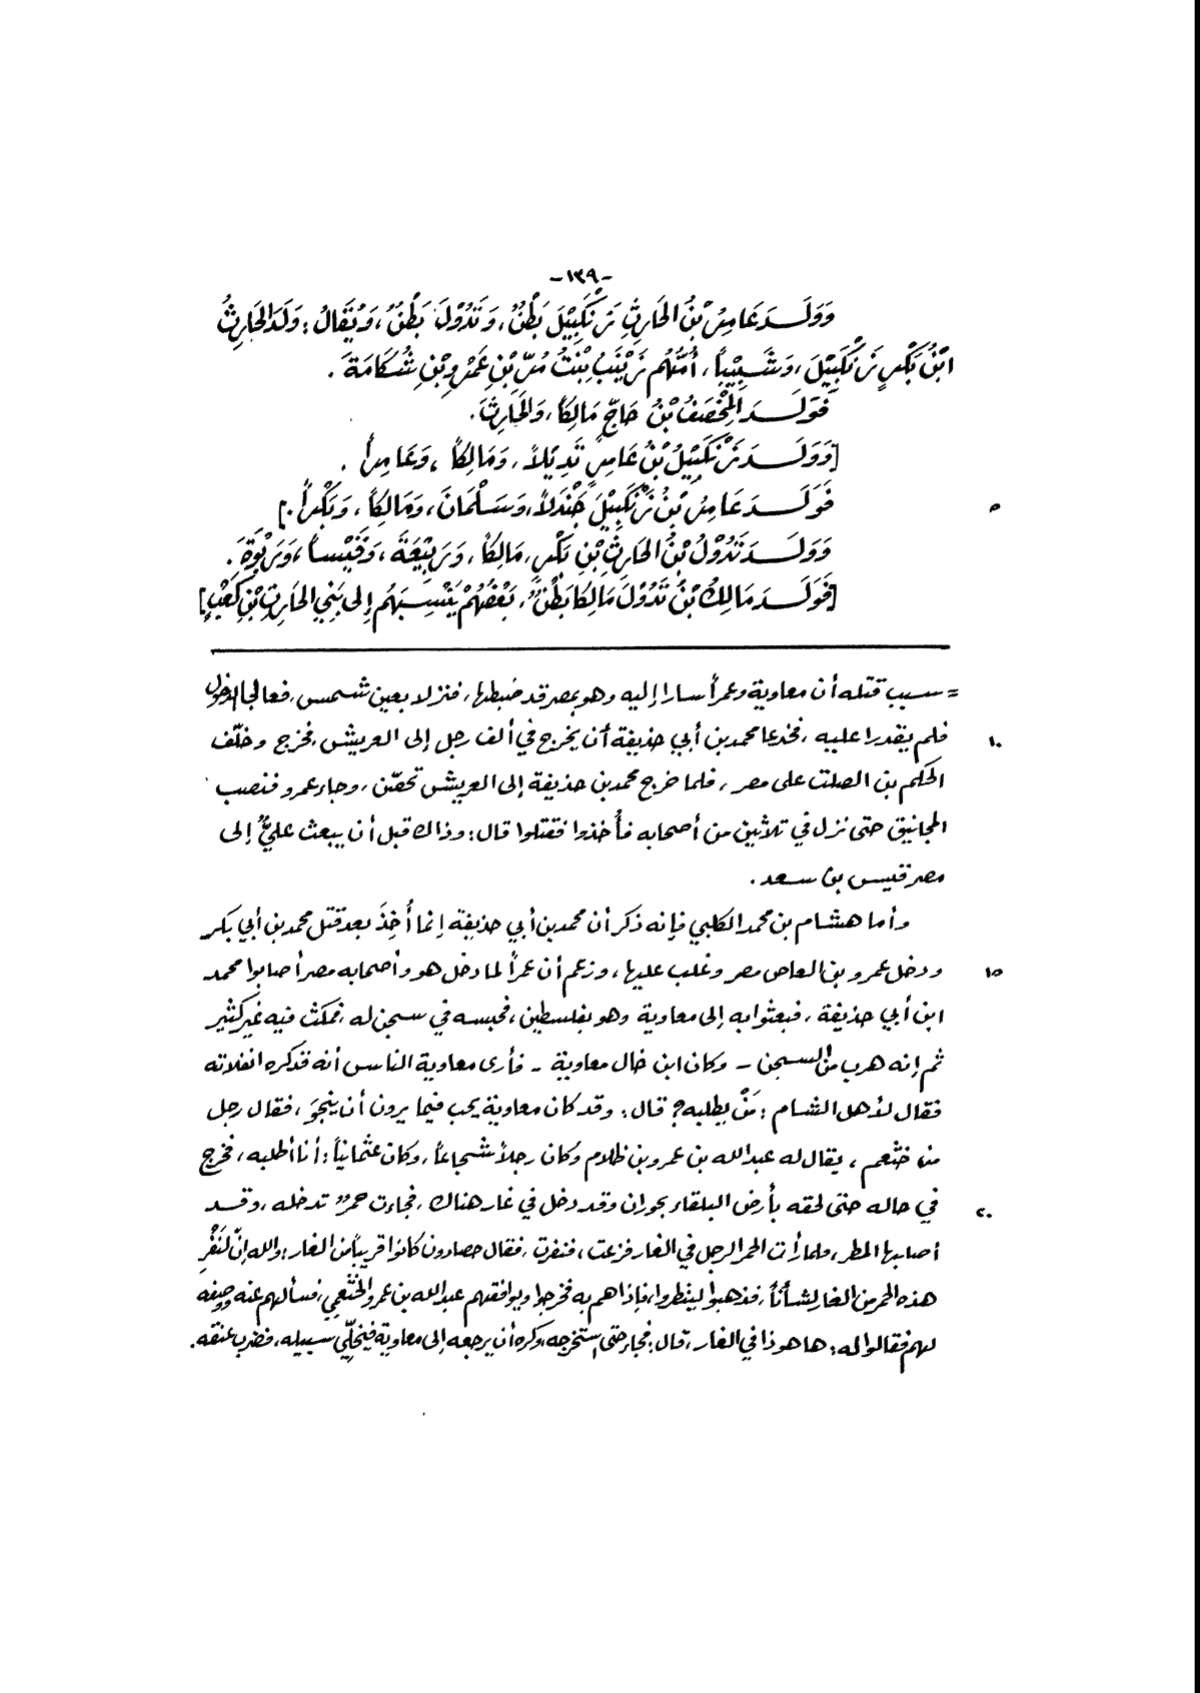 -١٣٩-
وَوَلَـدَ عَامِرُ بْنُ الحَارِثِ زَنْكَبِيْلَ بَطْنٌ، وَتَدُوْلَ بَطْنٌ، وَيُقَالُ: وَلَدَ الحَارِثُ
ابْنُ بَكْرٍ زَنْكَبِيْلَ، وَشَبِيْباً، أُمُّهُم زَيْنَبُ بِنْتُ مُرِّ بْنِ عَمْرِو بْنِ شُكَامَةَ.
فَوَلَـدَ المِخْصَفُ بْنُ حَاجٍّ مَالِكاً، وَالحَارِثَ.
[وَوَلَـدَ زَنْكَبِيْلُ بْنُ عَامِرٍ تَدِيْلاً، وَمَالِكاً، وَعَامِراً.
فَوَلَـدَ عَامِرُ بْنُ زَنْكَبِيْلَ جَنْدَلاً، وَسَلْمَانَ، وَمَالِكاً، وَبَكْراً.]
٥
وَوَلَـدَ تَدُوْلُ بْنُ الحَارِثِ بْنِ بَكْرٍ، مَالِكاً، وَرَبِيْعَةَ، وَقَيْساً، وَرَبْوَةَ.
[فَوَلَـدَ مَالِكُ بْنُ تَدُوْلَ مَالِكاً بَطْنٌ، بَعْضُهُمْ يَنْسِبُهُم إِلى بَنِي الحَارِثِ بْنِ كَعْبٍ]
= سبب قتله أن معاوية وعمراً سارا إليه وهو بمصر قد ضبطها، فنزلا بعين شمس، فعالجا الدخول
فلم يقدرا عليه، فخدعا محمد بن أبي حذيفة أن يخرج في ألف رجل إلى العريش، فخرج وخلّف
١٠
الحكم بن الصلت على مصر، فلما خرج محمد بن حذيفة إلى العريش تحصّن، وجاء عمرو فنصب
المجانيق حتى نزل في ثلاثين من أصحابه فأُخذوا فقتلوا قال: وذاك قبل أن يبعث عليٌّ إلى
مصر قيس بن سعد.
وأما هشام بن محمد الكلبي فإنه ذكر أن محمد بن أبي حذيفة إنما أُخِذَ بعد قتل محمد بن أبي بكر
ودخل عمرو بن العاص مصر وغلب عليها، وزعم أن عمراً لما دخل هو وأصحابه مصر أصابوا محمد
١٥
ابن أبي حذيفة، فبعثوا به إلى معاوية وهو بفلسطين، فحبسه في سجن له، فمكث فيه غير كثير
ثم إنه هرب من السجن - وكان ابن خال معاوية - فأرى معاوية الناس أنه قد كره انفلاته
فقال لأهل الشام: مَنْ يطلبه؟ قال: وقد كان معاوية يحب فيما يرون أن ينجوَ، فقال رجل
من خثعم، يقال له عبد الله بن عمرو بن ظلام وكان رجلاً شجاعاً، وكان عثمانياً: أنا أطلبه، فخرج
في حاله حتى لحقه بأرض البلقاء بحوران وقد دخل في غار هناك، فجاءت حمرٌ تدخله، وقد
٢٠
أصابها المطر، فلما رأت الحمر الرجل في الغار فزعت، فنفرت، فقال حصادون كانوا قريباً من الغار: والله إنّ لنَفْرِ
هذه الحمر من الغار لشأناً، فذهبوا لينظروا، فإذا هم به فخرجوا ويوافقهم عبد الله بن عمرو الخثعمي، فسألهم عنه ووصفه
لهم فقالوا له: ها هو ذا في الغار، قال: فجاء حتى استخرجه، وكره أن يرجعه إلى معاوية فيخلّي سبيله، فضرب عنقه.